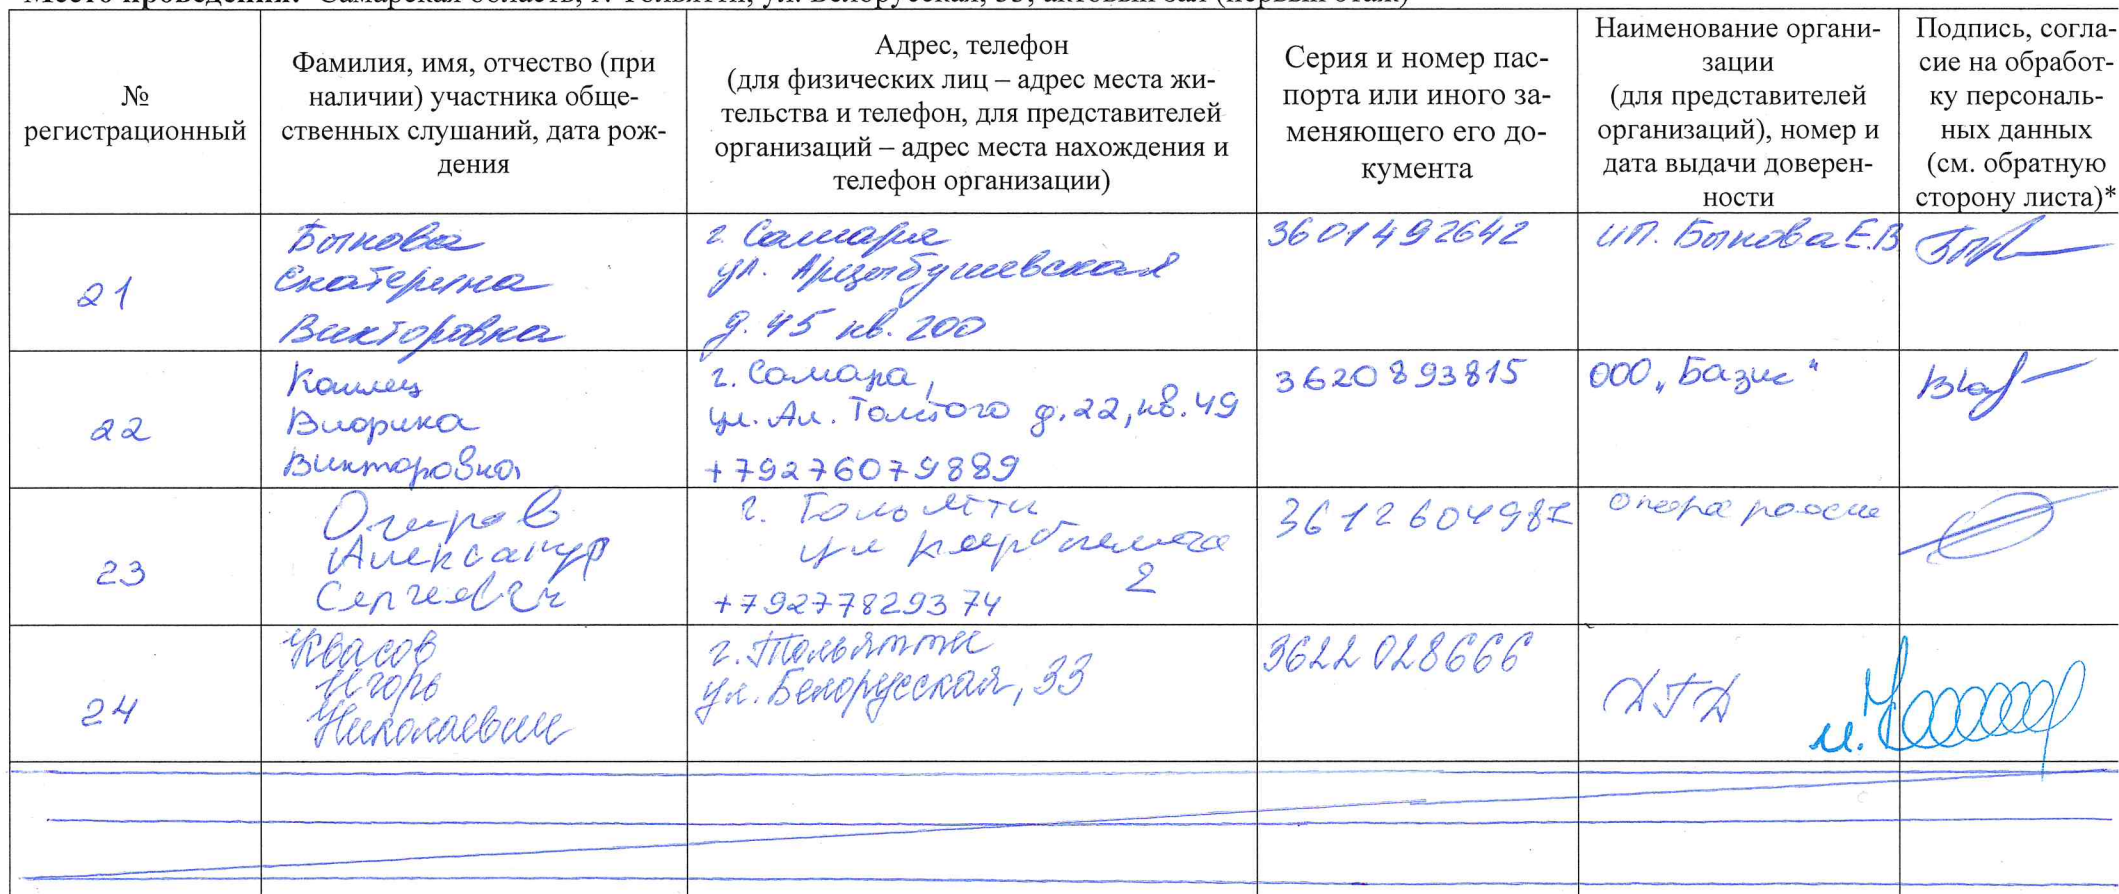 Место проведения: Самарская область, г. Тольятти, ул. Белорусская, 33, актовый зал (первый этаж)
№
регистрационный
Фамилия, имя, отчество (при
наличии) участника обще-
ственных слушаний, дата рож-
дения
Адрес, телефон
(для физических лиц – адрес места жи-
тельства и телефон, для представителей
организаций – адрес места нахождения и
телефон организации)
Серия и номер пас-
порта или иного за-
меняющего его до-
кумента
Наименование органи-
зации
(для представителей
организаций), номер и
дата выдачи доверен-
ности
Подпись, согла-
сие на обработ-
ку персональ-
ных данных
(см. обратную
сторону листа)*
21
Быкова
Екатерина
Викторовна
г. Самара
ул. Арцыбушевская
д. 45 кв. 200
3601492642
ИП. Быкова Е.В
22
Виорика
Викторовна
г. Самара,
ул. Ал. Толстого д. 22, кв. 49
+79276079889
3620893815
ООО „Базис“
23
Александр
Сергеевич
г. Тольятти
ул
2
+79277829374
Опора
24
Квасов
Игорь
Николаевич
г. Тольятти
ул. Белорусская, 33
3622028666
ДГД